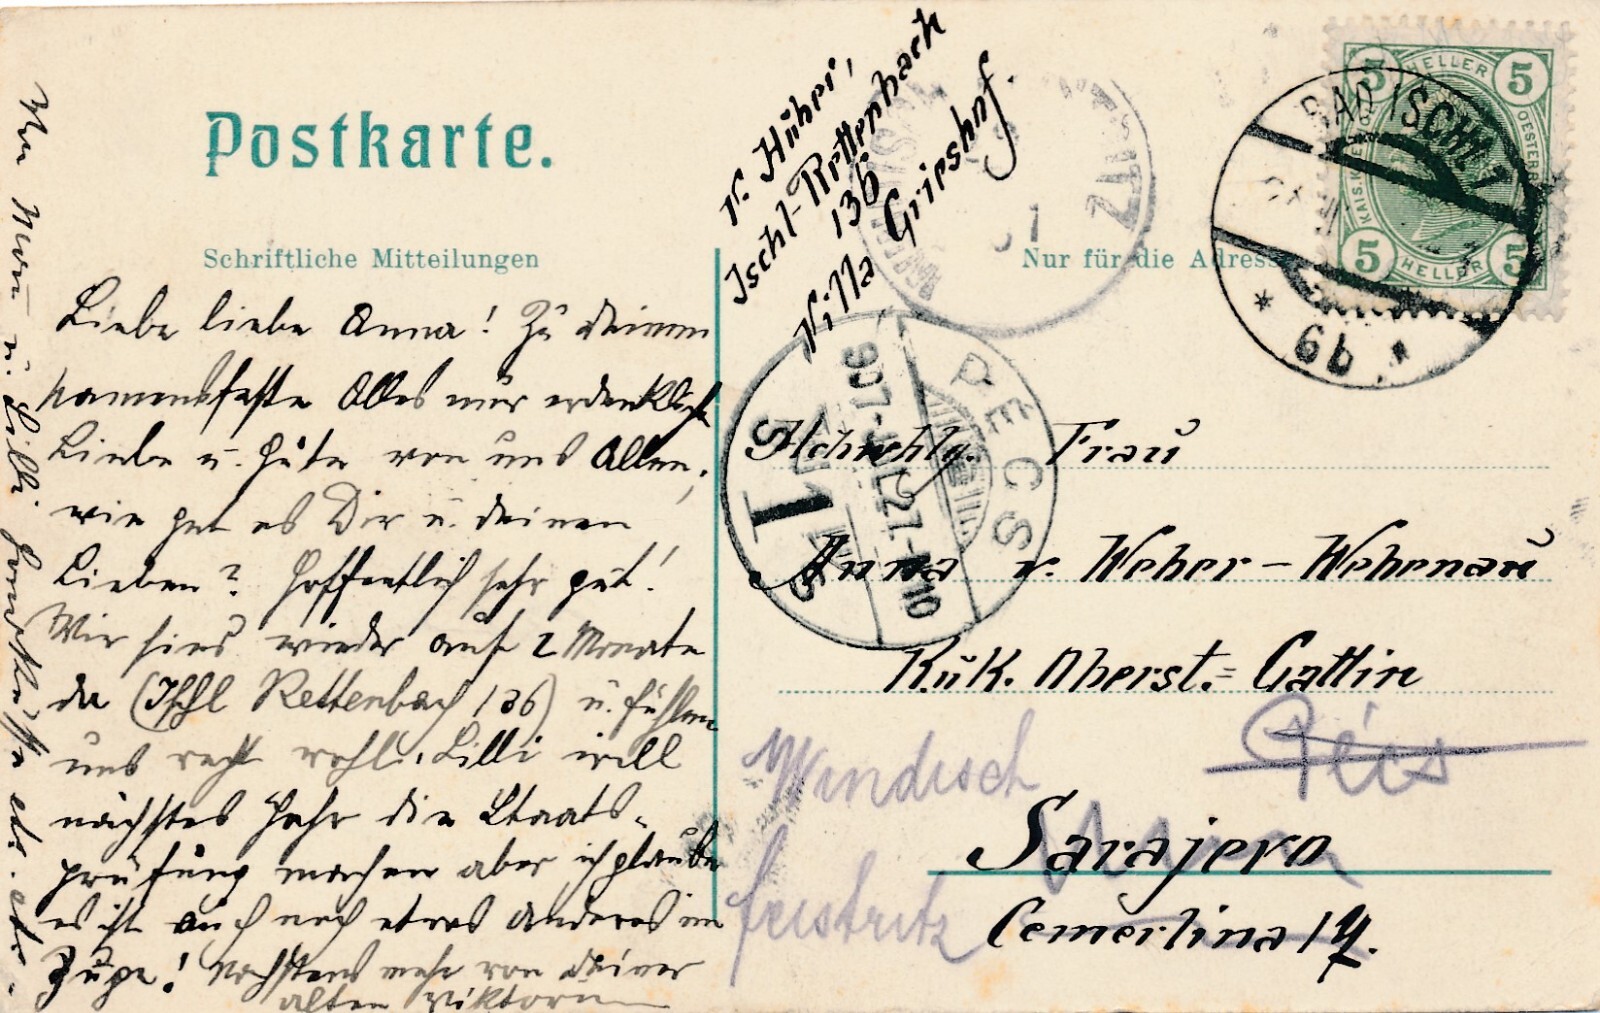 Postkarte.
Schriftliche Mitteilungen
Nur für die Adresse
v. Huber,
Ischl-Rettenbach
136
Villa Grieshof.
HELLER
5 5
5 5
HELLER
BAD ISCHL 1
* 6b *
PÉCS
907 JUL 27
Liebe liebe Anna! Zu deinem
Namensfeste Alles nur erdenkliche
Liebe u. Gute von uns Allen,
wie geht es Dir u. deinen
Lieben? Hoffentlich sehr gut!
Wir sind wieder auf 2 Monate
da (Ischl Rettenbach 136) u. fühlen
uns recht wohl. Lilli will
nächstes Jahr die Staats-
prüfung machen aber ich glaube
es ist auch noch etwas anderes im
Zuge! Nächstens mehr von deiner
alten Viktorine
u. Lilli
Hochwohlg. Frau
Anna v. Weber-Webenau
K.u.K. Oberst.=Gattin
Pécs
Sarajevo
Cemerlina 17.
Windisch
feistritz